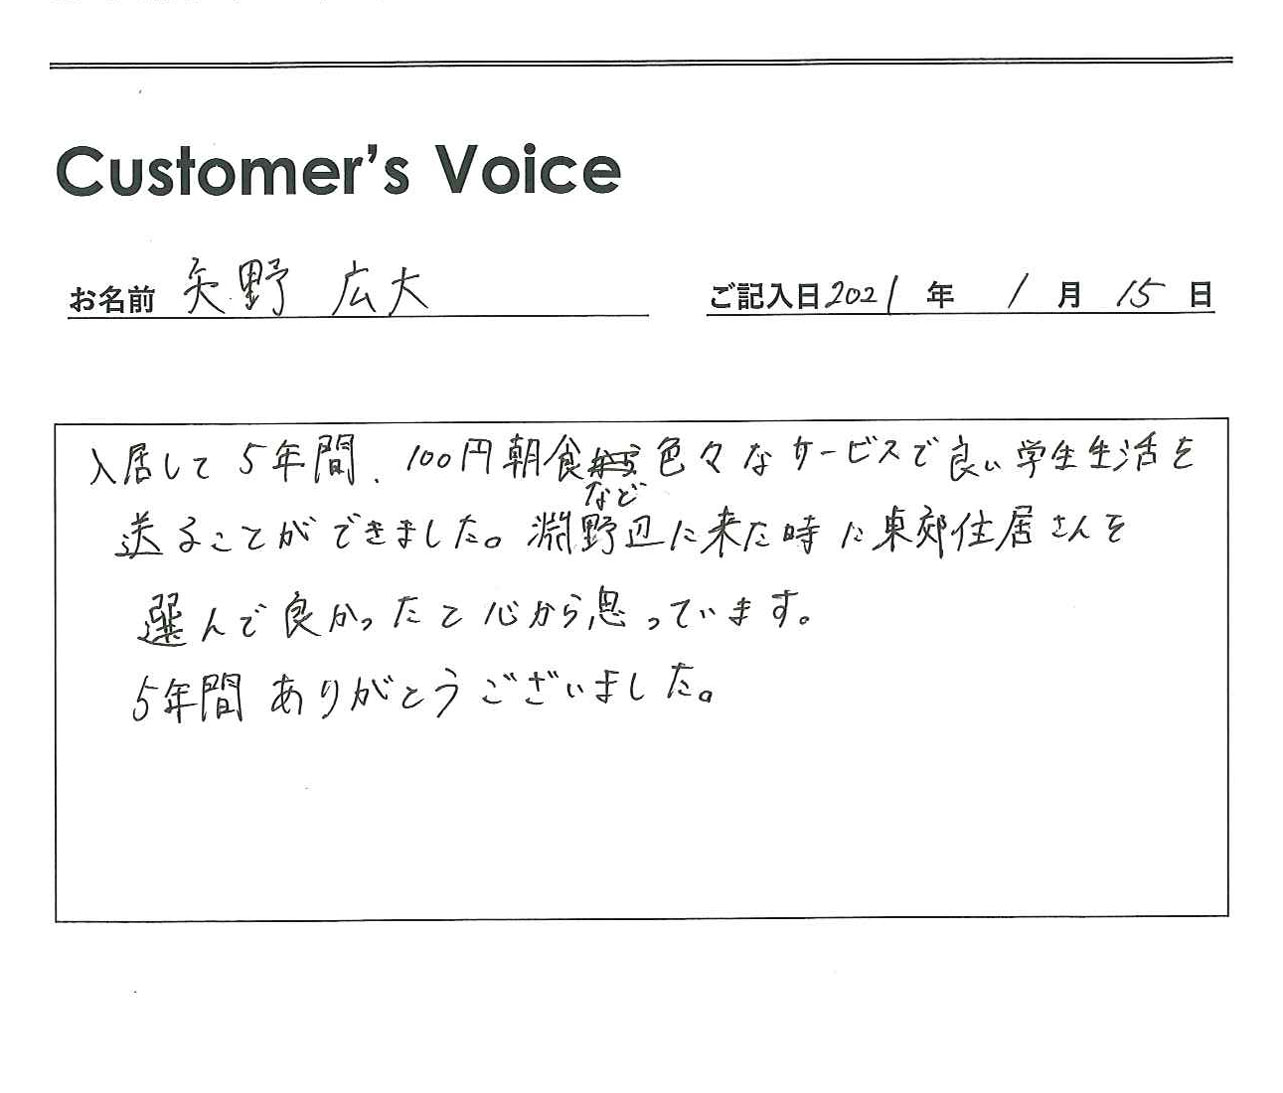 Customer's Voice
お名前 矢野 広大
ご記入日 2021 年 1 月 15 日
入居して5年間、100円朝食など色々なサービスで良い学生生活を
送ることができました。淵野辺に来た時に東郊住居さんを
選んで良かったと心から思っています。
5年間ありがとうございました。